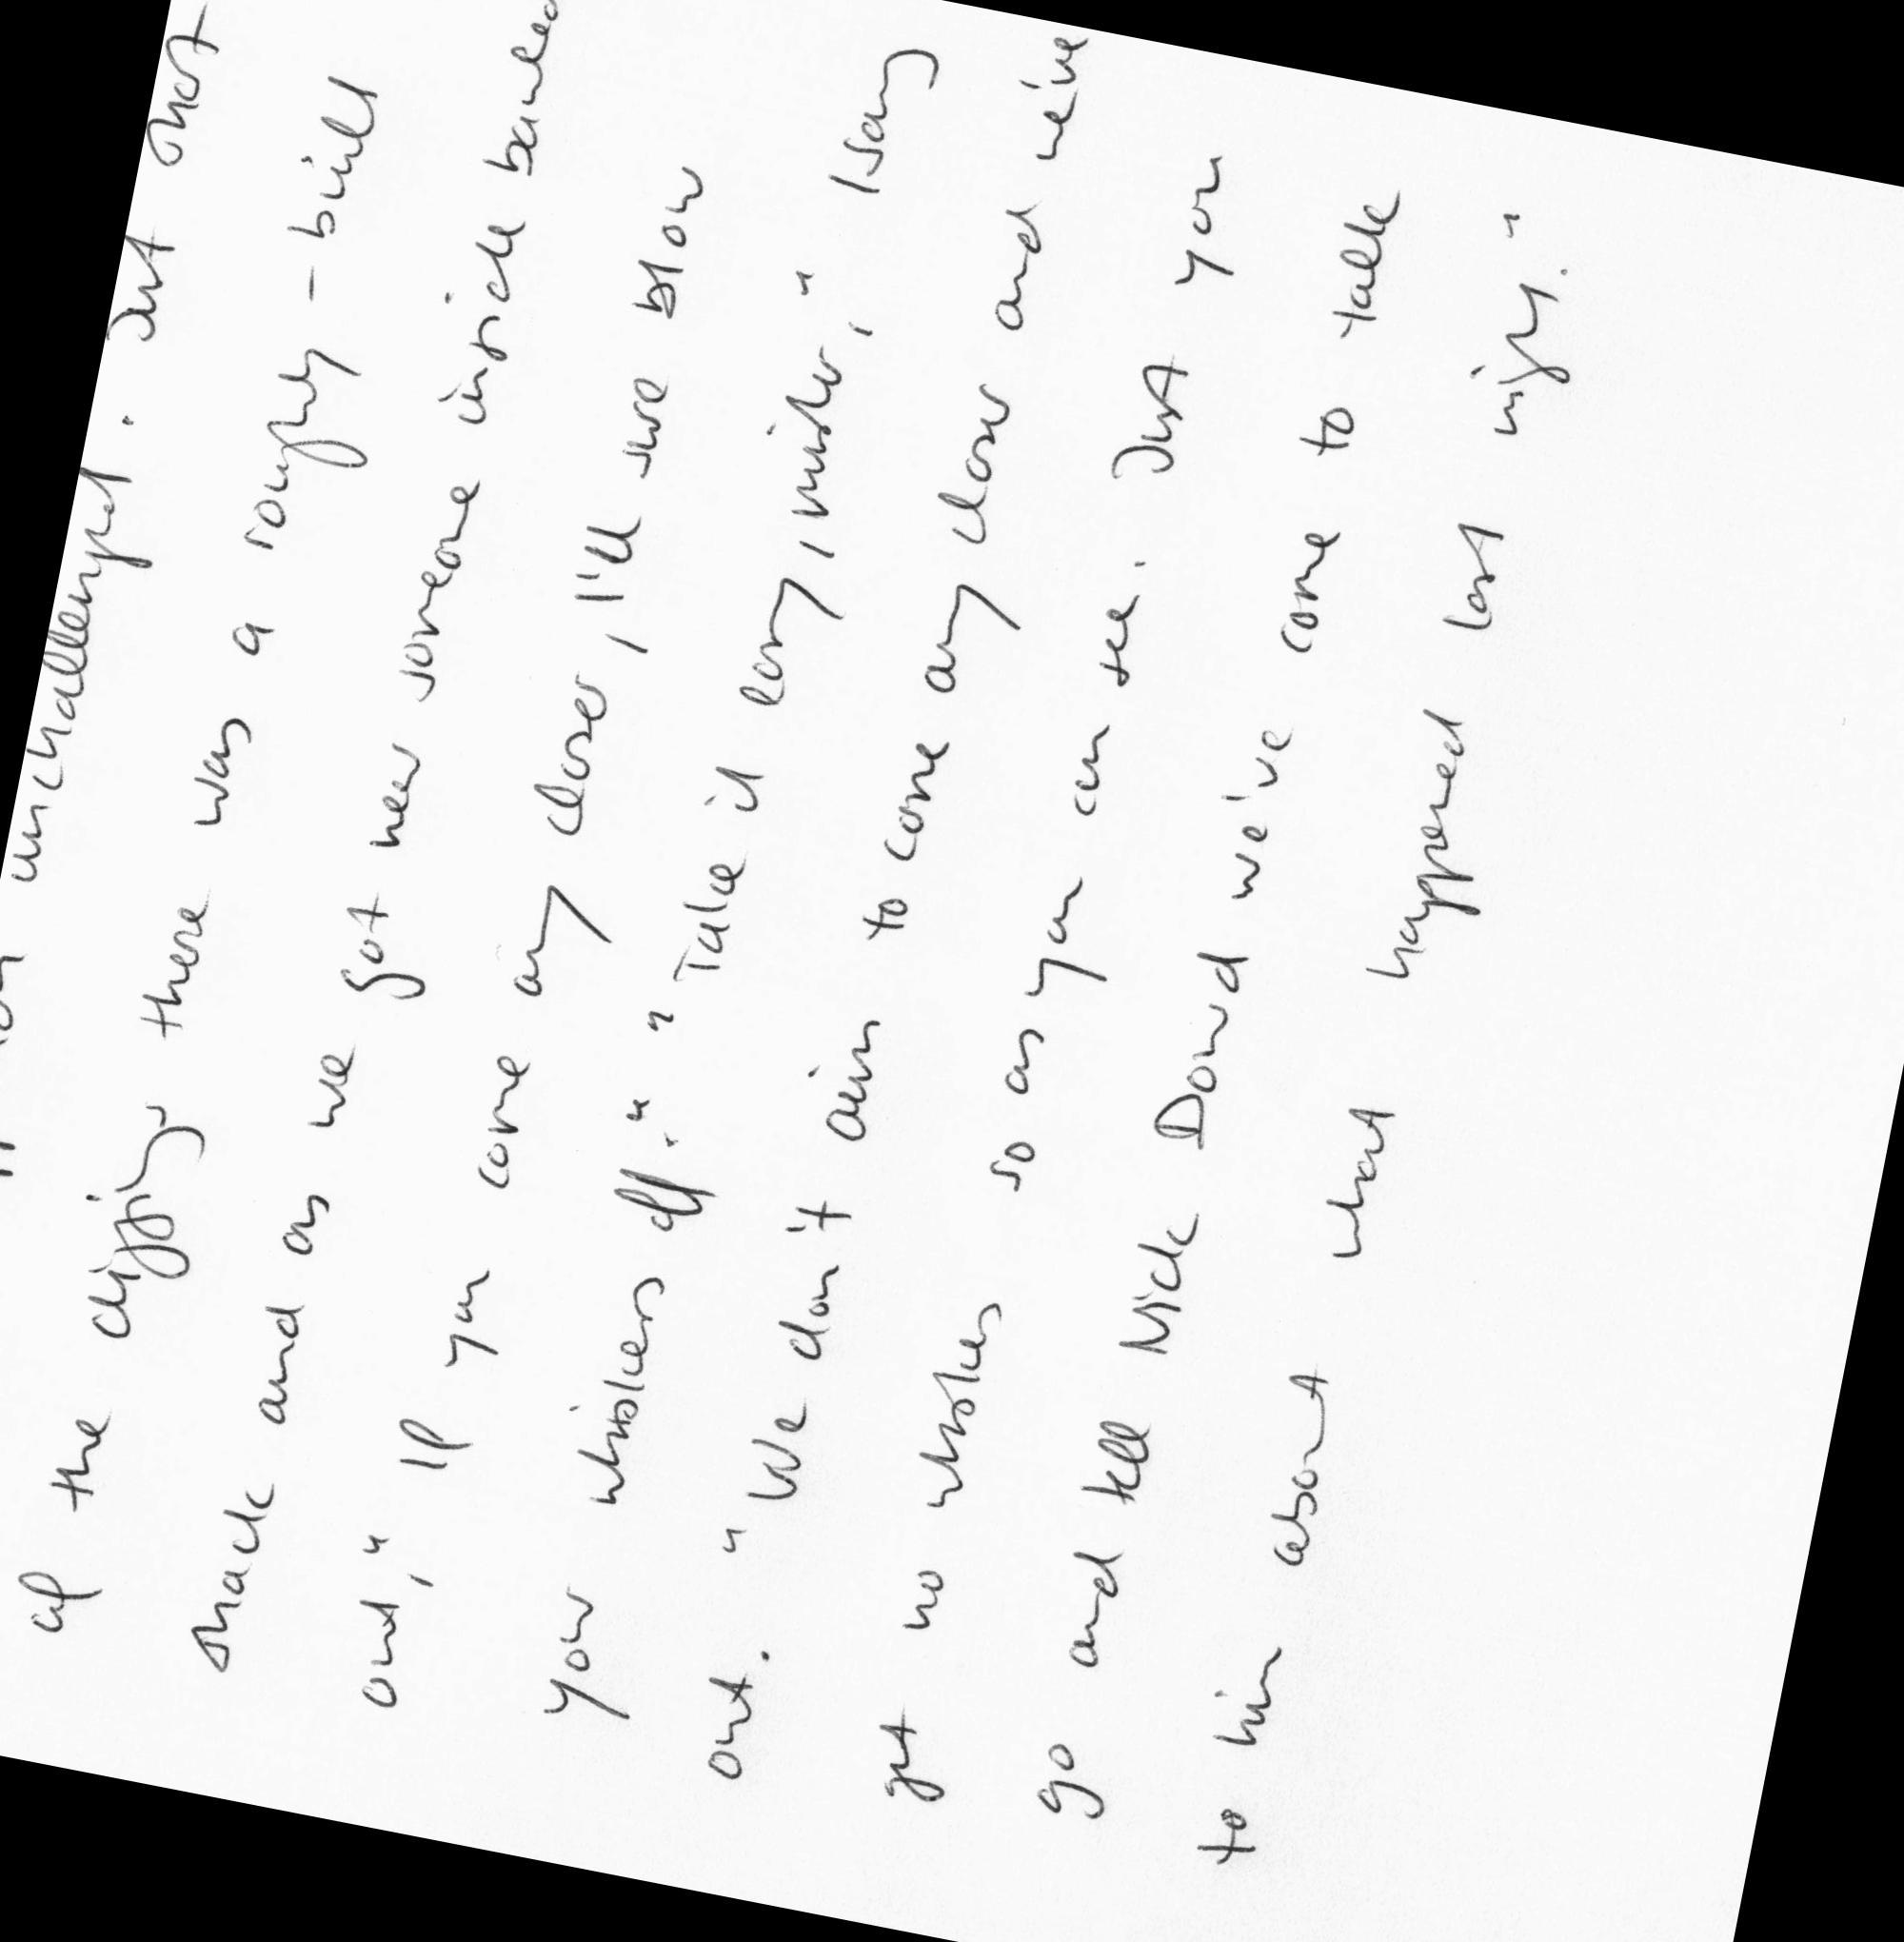 unchallenged. Just short
of the diggings there was a roughly-built
shack and as we got near someone inside bawled
out, "If you come any closer, I'll sure blow
your whiskers off." "Take it easy, mister," I sang
out. "We don't aim to come any closer and we've
got no whiskers so as you can see. Just you
go and tell Nick Dowd we've come to talk
to him about what happened last night."